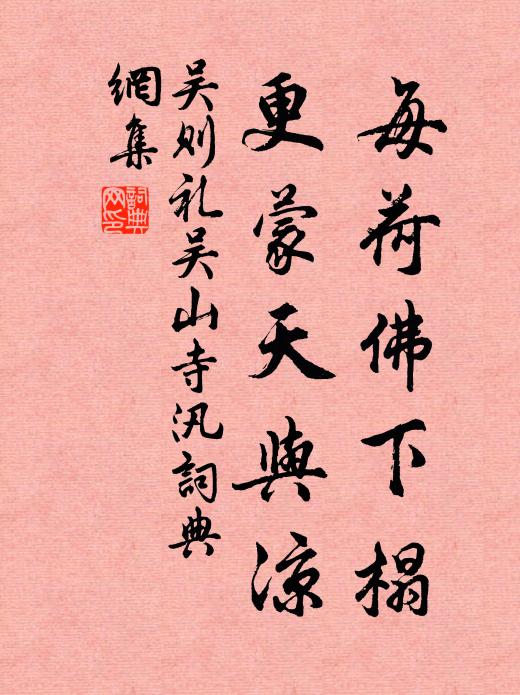 每荷佛下榻
更蒙天與涼
吳则礼吳山寺汎詞典
網集
詞典網印